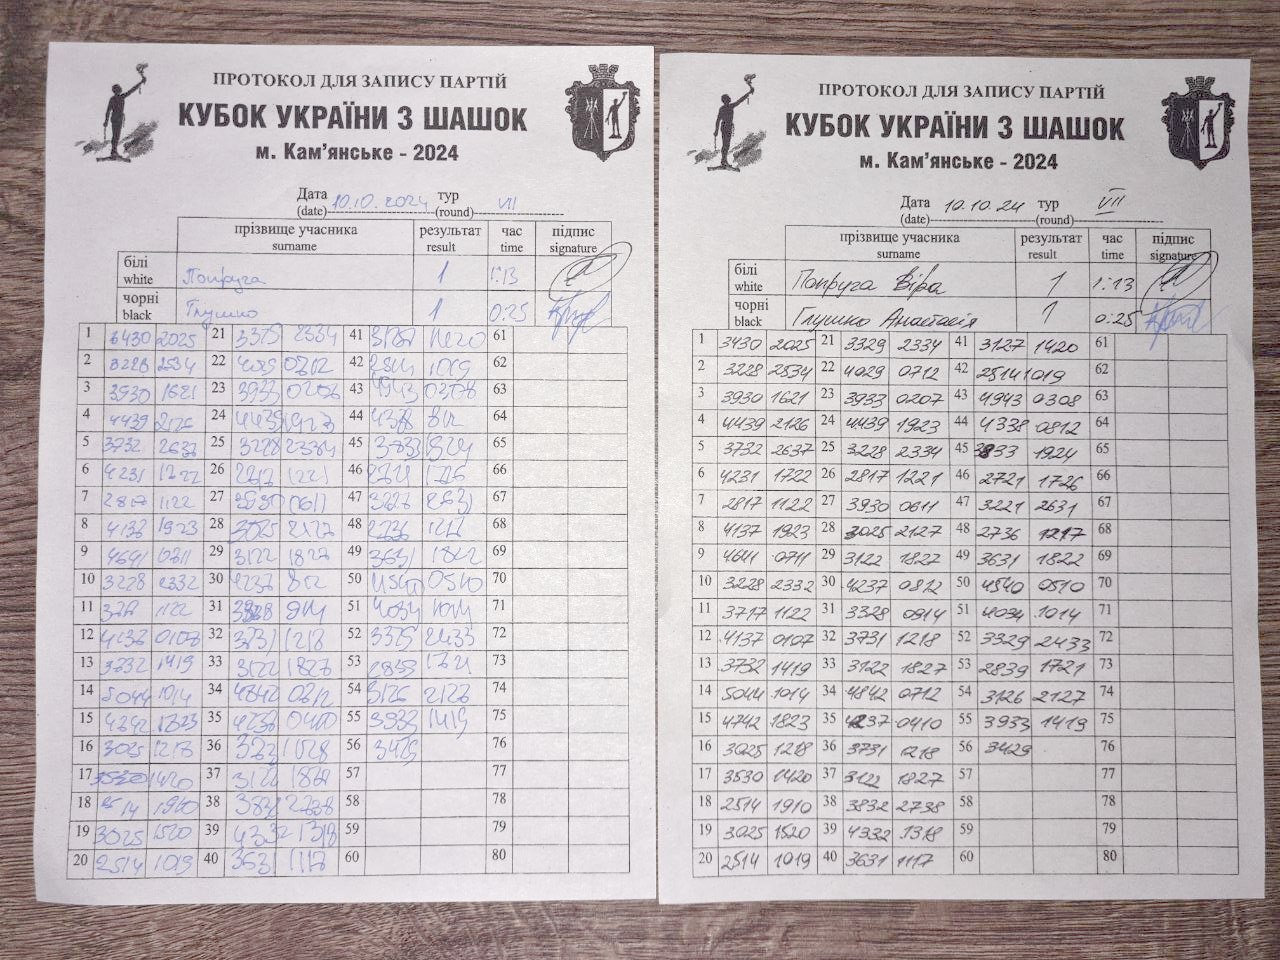 ПРОТОКОЛ ДЛЯ ЗАПИСУ ПАРТІЙ
КУБОК УКРАЇНИ З ШАШОК
м. Кам'янське - 2024
Дата 10.10.2024 тур VII
(date) (round)
прізвище учасника результат час підпис
surname result time signature
білі Попруга 1 1:13
white
чорні Глушко 1 0:25
black
1 3430 2025 21 2334 41 61
2 3228 2534 22 42 62
3 3930 1621 23 3933 43 4943 0308 63
4 4439 2126 24 4439 1923 44 64
5 3732 2637 25 3228 2334 45 65
6 4231 1722 26 1221 46 66
7 2817 1122 27 3930 0611 47 67
8 4137 1923 28 2127 48 68
9 4641 0711 29 3122 1827 49 3631 1822 69
10 3228 2332 30 4237 50 4540 0510 70
11 1122 31 51 4034 1014 71
12 4137 32 3731 1218 52 3329 2433 72
13 3732 1419 33 3122 1827 53 1721 73
14 5044 1014 34 4842 54 3126 2127 74
15 4742 1823 35 55 3933 1419 75
16 3025 1218 36 56 3429 76
17 1420 37 3122 57 77
18 38 58 78
19 3025 1520 39 4332 1318 59 79
20 2514 1019 40 3631 1117 60 80
ПРОТОКОЛ ДЛЯ ЗАПИСУ ПАРТІЙ
КУБОК УКРАЇНИ З ШАШОК
м. Кам'янське - 2024
Дата 10.10.24 тур VII
(date) (round)
прізвище учасника результат час підпис
surname result time signature
білі Попруга Віра 1 1:13
white
чорні Глушко Анастасія 1 0:25
black
1 3430 2025 21 3329 2334 41 3127 1420 61
2 3228 2534 22 4029 0712 42 2514 1019 62
3 3930 1621 23 3933 0207 43 4943 0308 63
4 4439 2126 24 4439 1923 44 4338 0812 64
5 3732 2637 25 3228 2334 45 3833 1924 65
6 4231 1722 26 2817 1221 46 2721 1726 66
7 2817 1122 27 3930 0611 47 3221 2631 67
8 4137 1923 28 3025 2127 48 2736 1217 68
9 4641 0711 29 3122 1827 49 3631 1822 69
10 3228 2332 30 4237 0812 50 4540 0510 70
11 3717 1122 31 3328 0914 51 4034 1014 71
12 4137 0107 32 3731 1218 52 3329 2433 72
13 3732 1419 33 3122 1827 53 2839 1721 73
14 5044 1014 34 4842 0712 54 3126 2127 74
15 4742 1823 35 4237 0410 55 3933 1419 75
16 3025 1218 36 3731 1218 56 3429 76
17 3530 1420 37 3122 1827 57 77
18 2514 1910 38 3832 2738 58 78
19 3025 1520 39 4332 1318 59 79
20 2514 1019 40 3631 1117 60 80